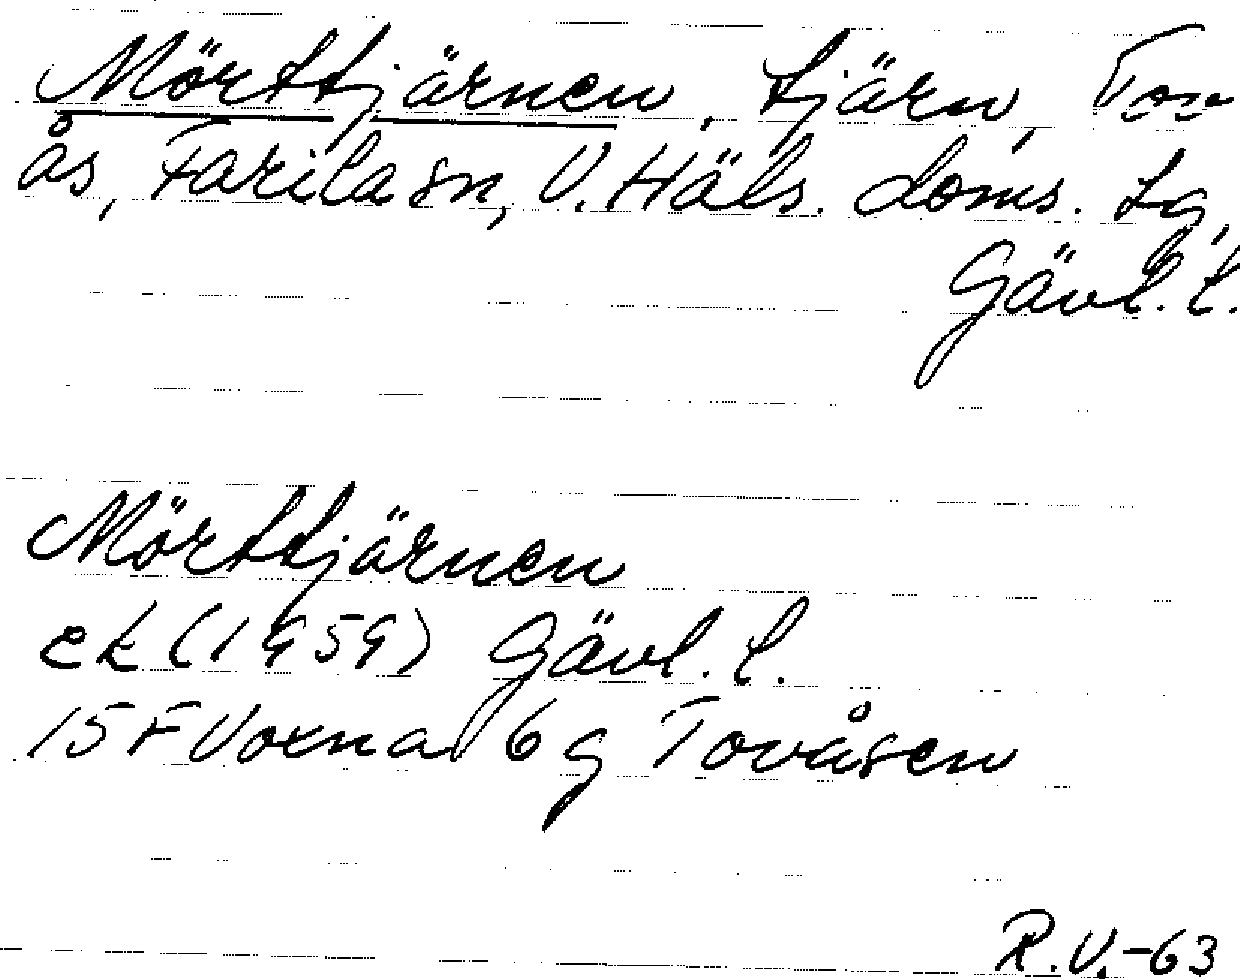 Mörttjärnen, tjärn, Tov-
ås, Färila sn, V. Häls. doms. lg,
Gävl. l.
Mörttjärnen
ek (1959) Gävl. l.
15F Voxna 6g Tovåsen
R.V.-63